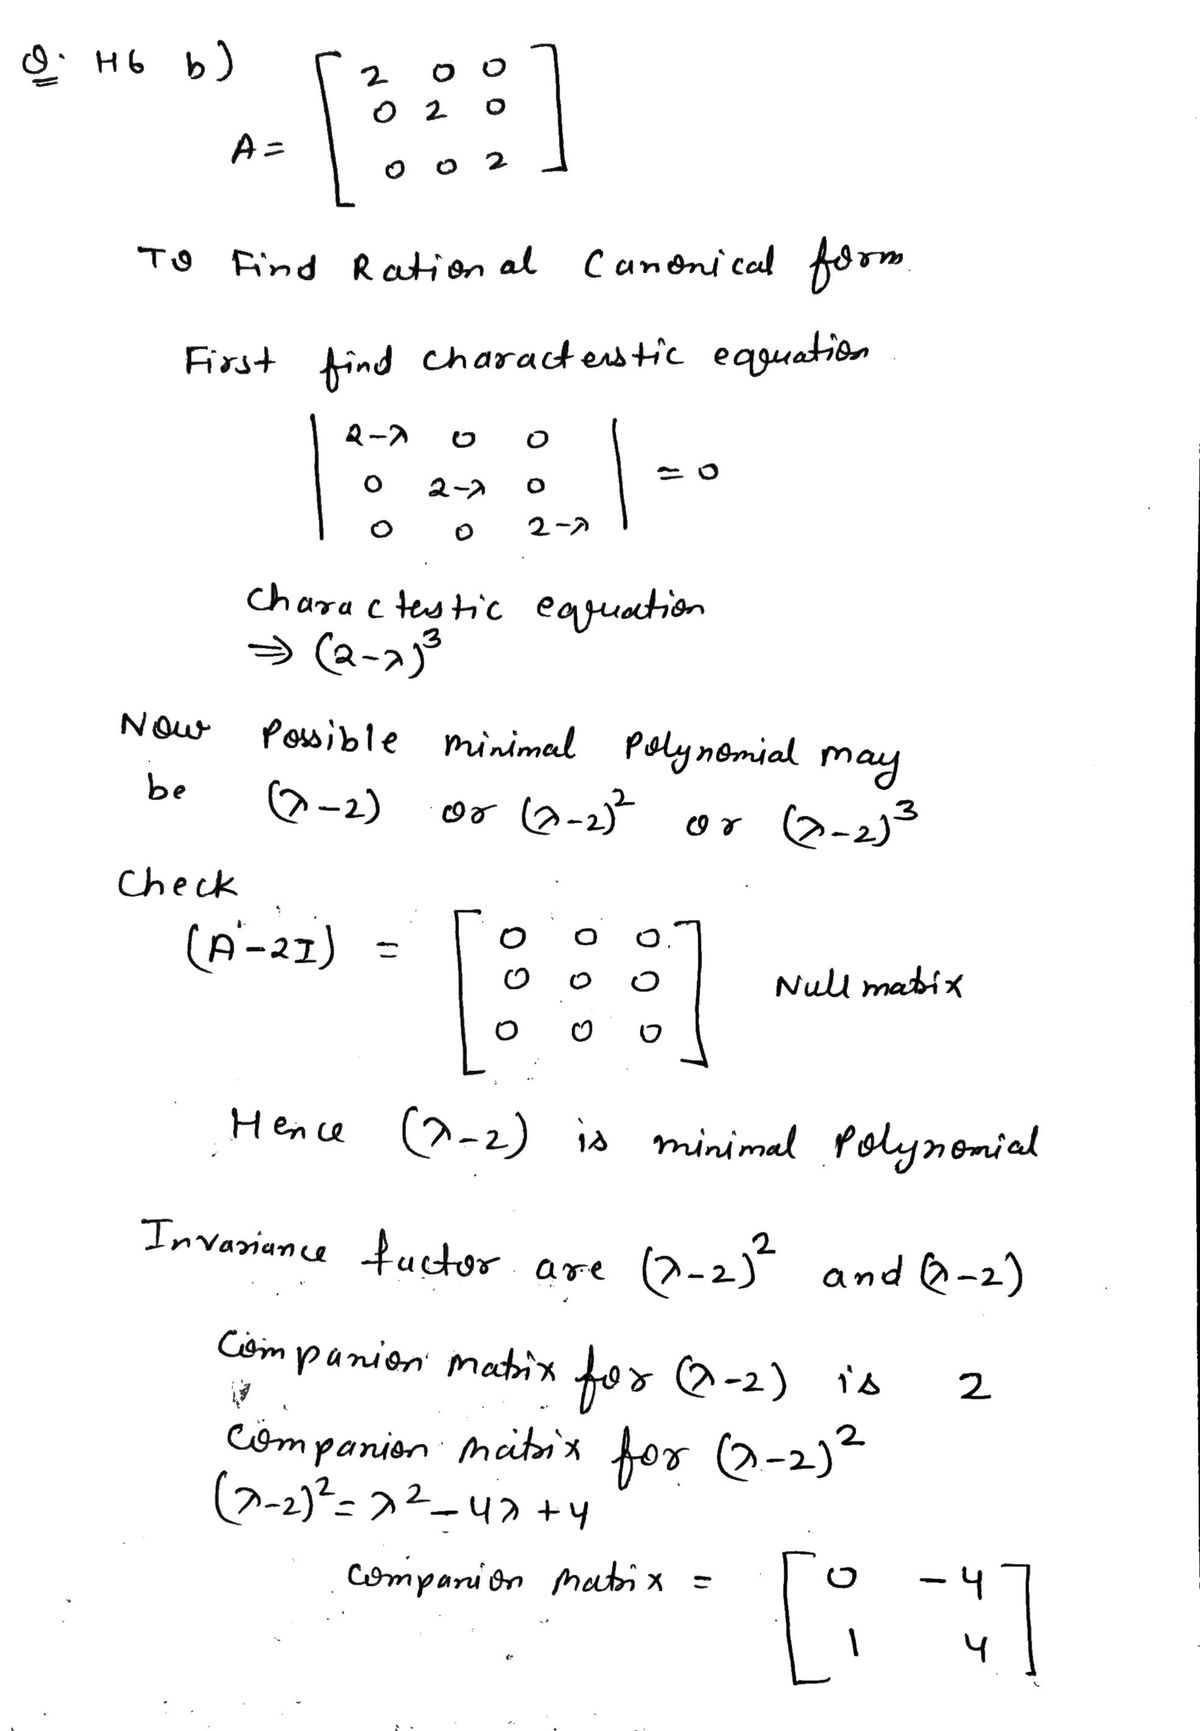 Q. H6 b)
A = [ 2 0 0
0 2 0
0 0 2 ]
To Find Rational Canonical form.
First find characterstic equation
| 2-λ 0 0
0 2-λ 0
0 0 2-λ | = 0
Charactestic equation
⇒ (2-λ)³
Now Possible minimal Polynomial may
be (λ-2) or (λ-2)² or (λ-2)³
Check
(A-2I) = [ 0 0 0
0 0 0
0 0 0 ] Null matrix
Hence (λ-2) is minimal Polynomial
Invariance factor are (λ-2)² and (λ-2)
Companion matrix for (λ-2) is 2
Companion matrix for (λ-2)²
(λ-2)² = λ² - 4λ + 4
Companion matrix = [ 0 -4
1 4 ]